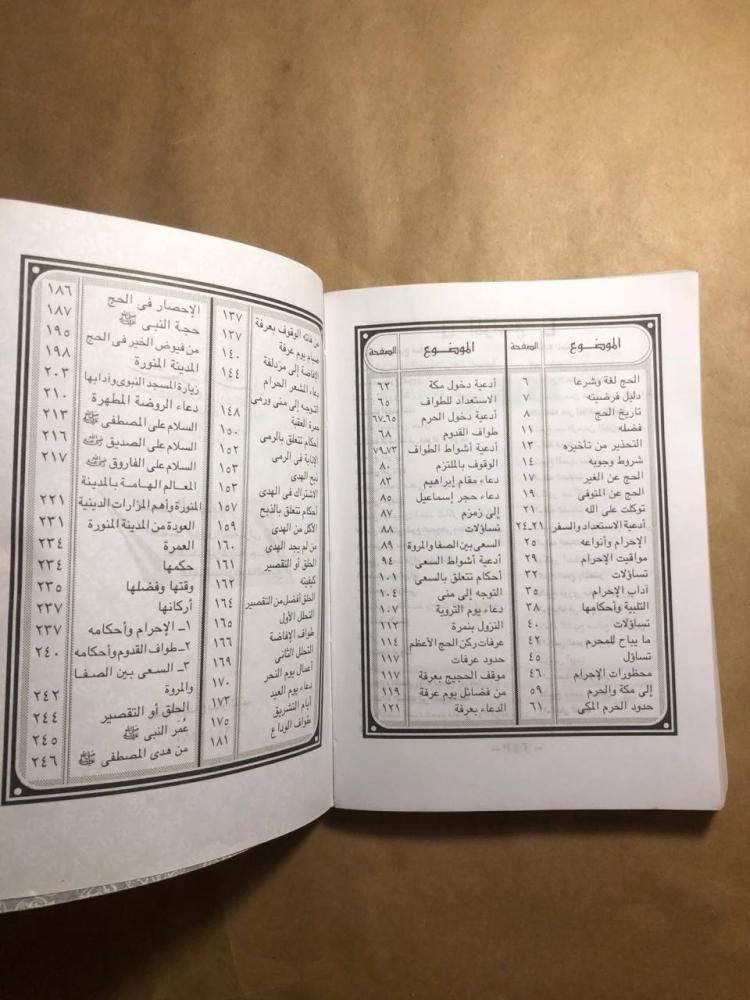 الموضوع الصفحة
الحج لغة وشرعا ٦
دليل فرضيته ٧
تاريخ الحج ٨
فضله ١١
التحذير من تأخيره ١٣
شروط وجوبه ١٤
الحج عن الغير ١٧
الحج عن المتوفى ١٩
توكلت على الله ٢١
أدعية الاستعداد والسفر ٢١ـ٢٤
الإحرام وأنواعه ٢٥
مواقيت الإحرام ٢٩
تساؤلات ٣٢
آداب الإحرام ٣٥
التلبية وأحكامها ٣٨
تساؤلات ٤٠
ما يباح للمحرم ٤٢
تساؤل ٤٥
محظورات الإحرام ٤٦
إلى مكة والحرم ٥٩
حدود الحرم المكى ٦١
الموضوع الصفحة
أدعية دخول مكة ٦٢
الاستعداد للطواف ٦٥
أدعية دخول الحرم ٦٥ـ٦٧
طواف القدوم ٦٨
أدعية أشواط الطواف ٧٣ـ٧٩
الوقوف بالملتزم ٨٠
دعاء مقام إبراهيم ٨٣
دعاء حجر إسماعيل ٨٥
إلى زمزم ٨٧
تساؤلات ٨٨
السعى بين الصفا والمروة ٨٩
أدعية أشواط السعى ٩٤
أحكام تتعلق بالسعى ١٠١
التوجه إلى منى ١٠٤
دعاء يوم التروية ١٠٧
النزول بنمرة ١١٢
عرفات ركن الحج الأعظم ١١٤
حدود عرفات ١١٧
موقف الحجيج بعرفة ١١٧
من فضائل يوم عرفة ١١٩
الدعاء بعرفة ١٢١
من فاته الوقوف بعرفة ١٣٧
صيام يوم عرفة ١٣٧
الإفاضة إلى مزدلفة ١٤٠
دعاء المشعر الحرام ١٤٤
التوجه إلى منى ورمى
جمرة العقبة ١٤٨
أحكام تتعلق بالرمى ١٥٠
الإنابة فى الرمى ١٥٢
ذبح الهدى ١٥٣
الاشتراك فى الهدى ١٥٣
أحكام تتعلق بالذبح
الأكل من الهدى ١٥٩
من لم يجد الهدى ١٦٠
الحلق أو التقصير ١٦١
كيفيته ١٦٢
الحلق أفضل من التقصير ١٦٤
التحلل الأول ١٦٥
طواف الإفاضة ١٦٦
التحلل الثانى ١٦٩
أعمال يوم النحر ١٧٠
دعاء يوم العيد ١٧٣
أيام التشريق ١٧٥
طواف الوداع ١٨١
الإحصار فى الحج ١٨٦
حجة النبى ﷺ ١٨٧
من فيوض الخير فى الحج ١٩٥
المدينة المنورة ١٩٨
زيارة المسجد النبوى وآدابها ٢٠٣
دعاء الروضة المطهرة ٢١٠
السلام على المصطفى ﷺ ٢١٣
السلام على الصديق ٢١٦
السلام على الفاروق ٢١٧
المعالم الهامة بالمدينة
المنورة وأهم المزارات الدينية ٢٢١
العودة من المدينة المنورة ٢٣١
العمرة ٢٣٤
حكمها ٢٣٤
وقتها وفضلها ٢٣٥
أركانها ٢٣٧
١ـ الإحرام وأحكامه ٢٣٧
٢ـ طواف القدوم وأحكامه ٢٤٠
٣ـ السعى بين الصفا
والمروة ٢٤٢
الحلق أو التقصير ٢٤٤
عُمَر النبى ﷺ ٢٤٥
من هدى المصطفى ﷺ ٢٤٦